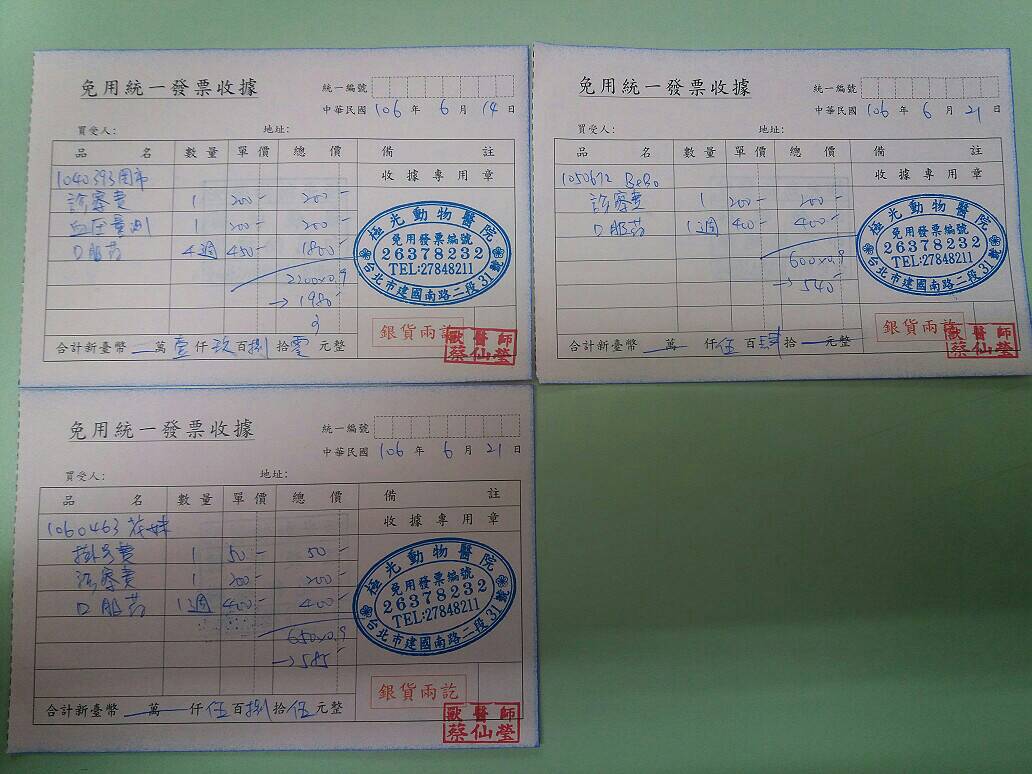 免用統一發票收據
統一編號
中華民國 106 年 6 月 14 日
買受人: 地址:
品名 數量 單價 總價 備註
1040393 收據專用章
診察費 1 200- 200-
血壓量測 1 200- 200-
口服药 4週 450- 1800-
2200x0.9
→1980-
極光動物醫院
免用發票編號
26378232
TEL:27848211
台北市建國南路二段31號
銀貨兩訖
獸醫師
蔡仙瑩
合計新臺幣 萬 壹仟 玖百 捌拾 零元整
免用統一發票收據
統一編號
中華民國 106 年 6 月 21 日
買受人: 地址:
品名 數量 單價 總價 備註
1050672 BeBo 收據專用章
診察費 1 200- 200-
口服药 1週 400- 400-
600x0.9
→540-
極光動物醫院
免用發票編號
26378232
TEL:27848211
台北市建國南路二段31號
銀貨兩訖
獸醫師
蔡仙瑩
合計新臺幣 萬 仟 伍百 肆拾 元整
免用統一發票收據
統一編號
中華民國 106 年 6 月 21 日
買受人: 地址:
品名 數量 單價 總價 備註
1060463 收據專用章
掛號費 1 50- 50-
診察費 1 200- 200-
口服药 1週 400- 400-
650x0.9
→585-
極光動物醫院
免用發票編號
26378232
TEL:27848211
台北市建國南路二段31號
銀貨兩訖
獸醫師
蔡仙瑩
合計新臺幣 萬 仟 伍百 捌拾 伍元整